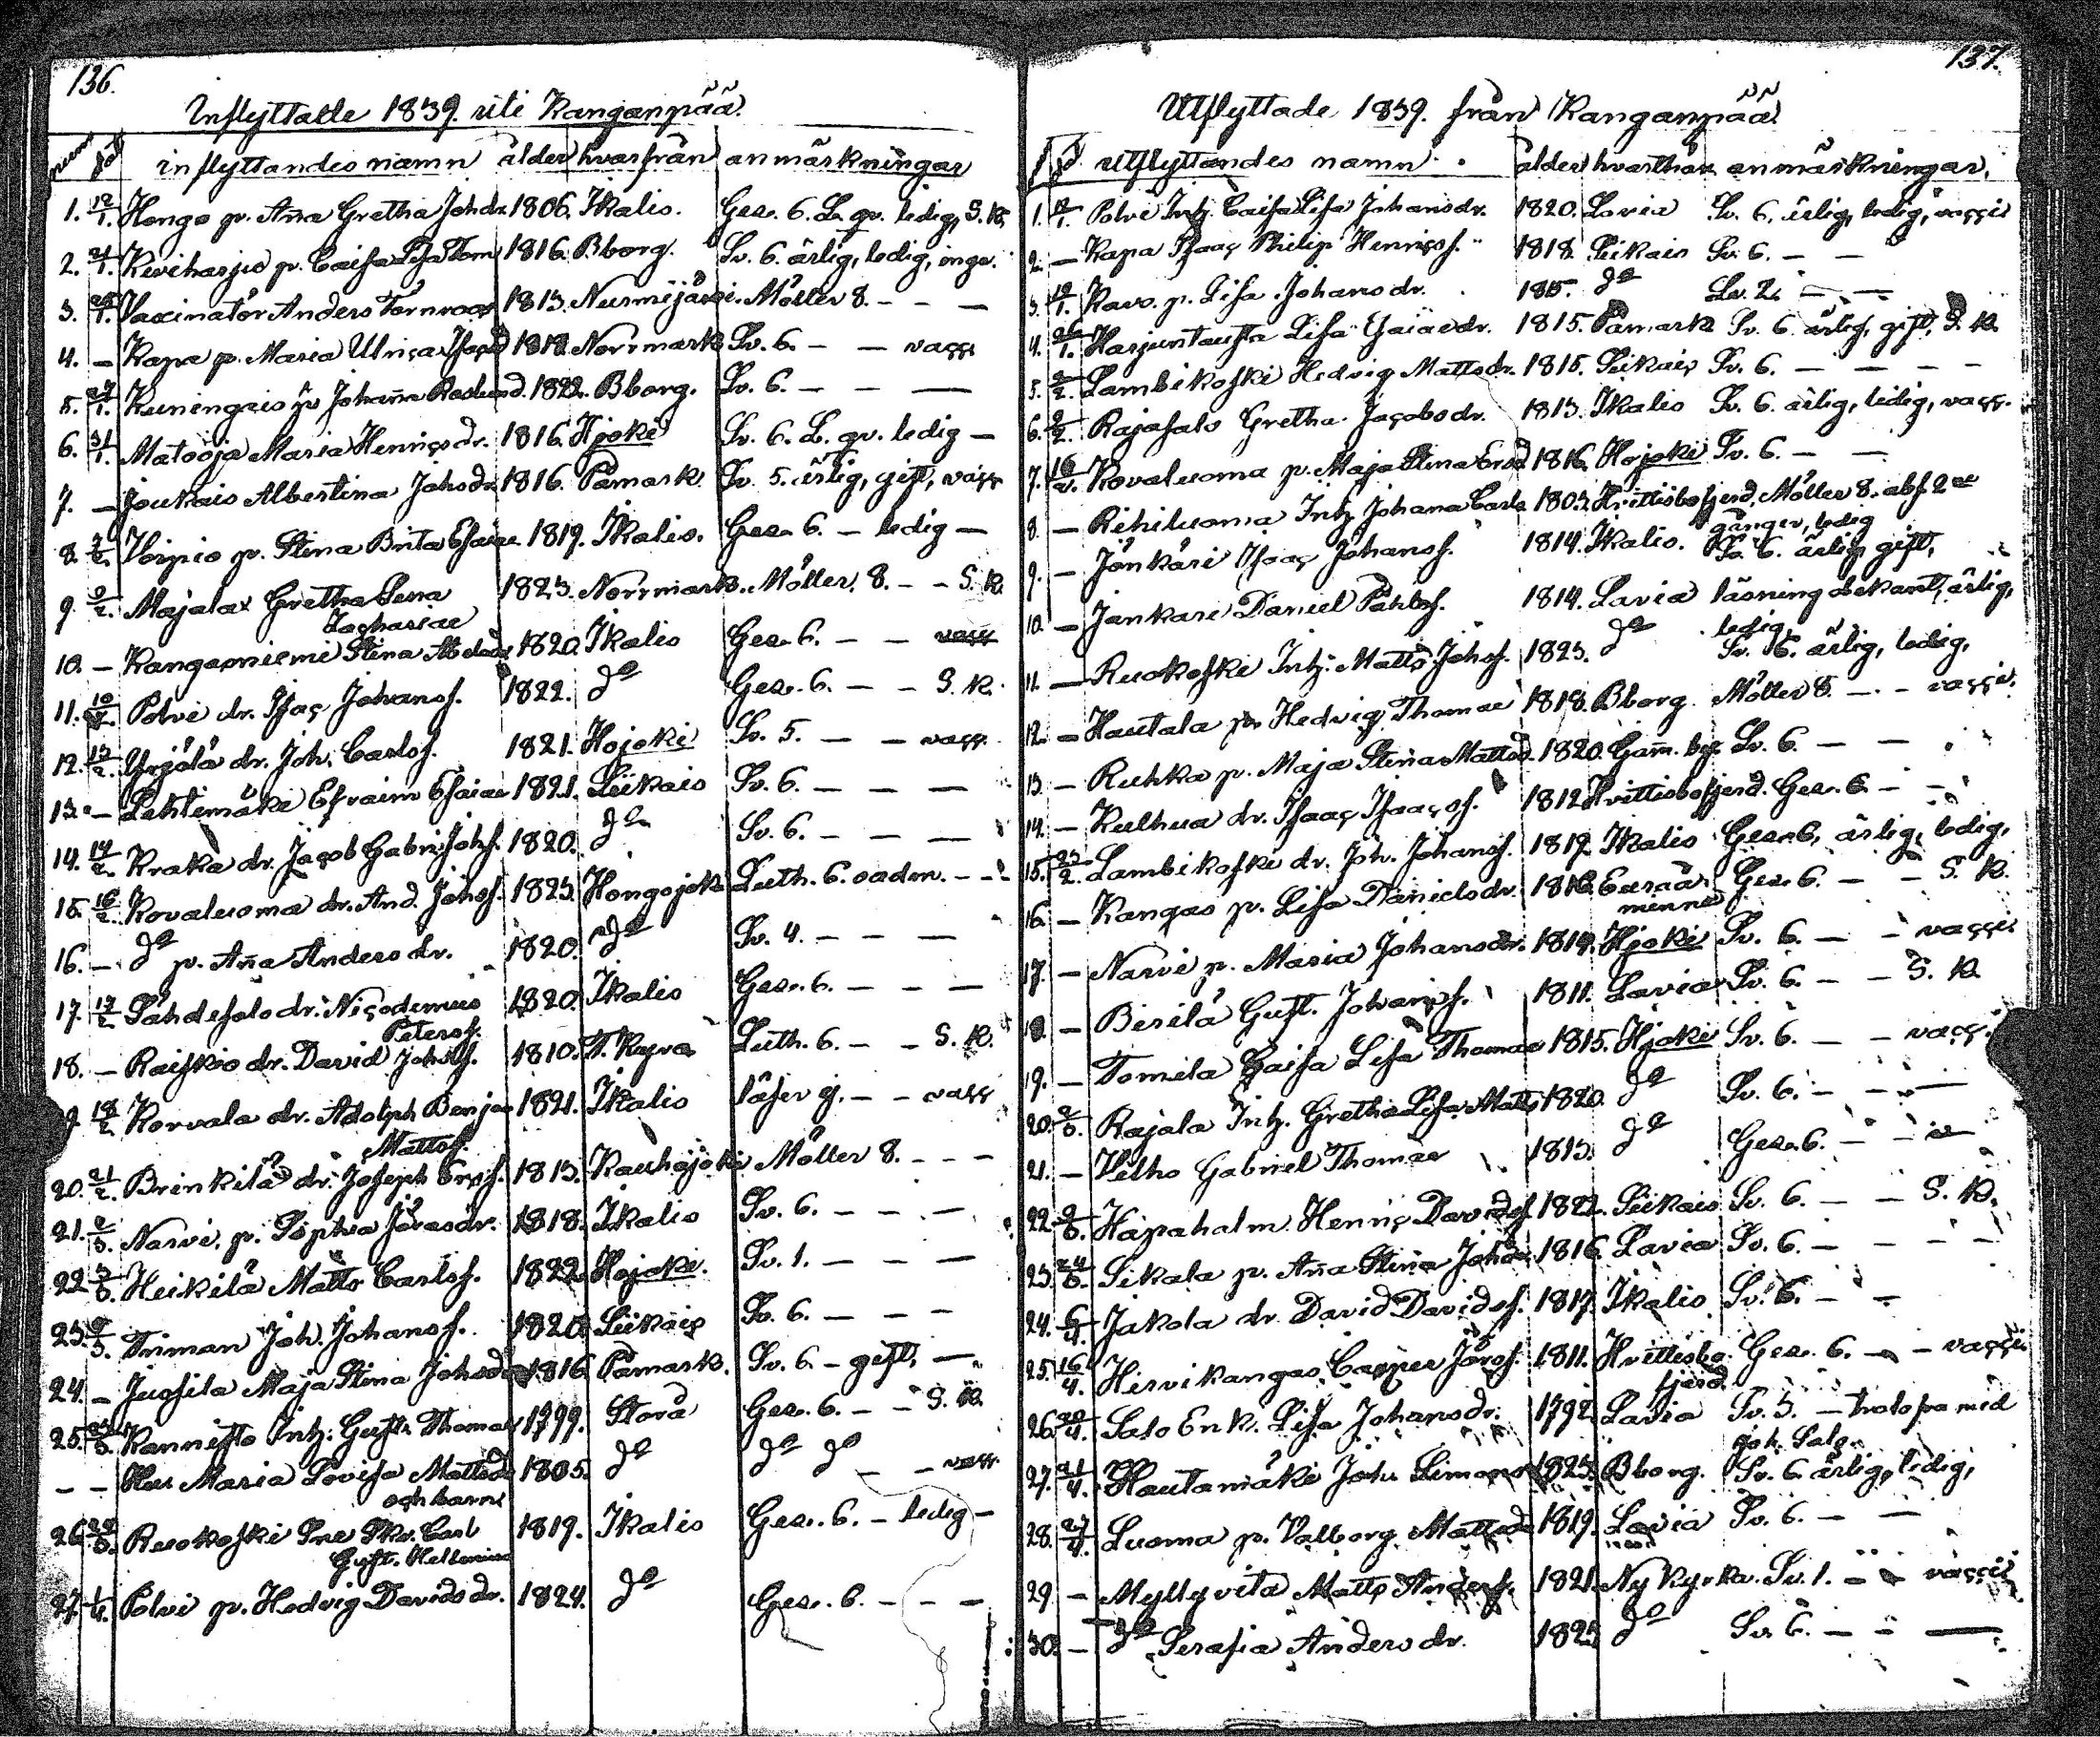 136.
Inflyttade 1839. uti Kanganpää
num dat inflyttandes namn ålder hvarfrån anmärkningar
1. 12/1. Honga p. Aña Gretha Johdr 1806. Ikalis. Gez. 6. L. qv. ledig, S. K.
2. 21/1. Keviharju p. Caisa Lisa Tom 1816 Bborg. Sv. 6. ärlig, ledig, inga.
3. Vaccinatör Anders Törnroos 1813. Nurmijärvi. Möller 8. — — —
4. — Kapa p. Maria Ulrica 1818. Norrmark Sv. 6. — — vacc
5. 27/1. Kuningais p Johaña 1822. Bborg. Sv. 6. — — —
6. 31/1. Matoja Maria Henricsdr. 1816. Hjoki Sv. 6. L. qv. ledig —
7. — Joukais Albertina Johsdr 1816. Påmark. Sv. 5. ärlig, gift, vacc
8. Voipio p. Stina Brita Esaiae 1819. Ikalis. Gez. 6. — ledig —
9. 9/2. Majalax Gretha Lena 1823. Norrmark. Möller. 8. — — S. K.
Zachariae
10. — Kangasniemi Stina 1820. Ikalis Gez. 6. — — vacc
11. Polvi dr. Isac Johansf. 1822. do Gez. 6. — — S. K.
12. 13/2. Yrjälä dr. Joh. Carlsf. 1821. Hojoki Sv. 5. — — vacc.
13. — Lehtimäki Efraim Esaiae 1821. Siikais Sv. 6. — — —
14. 14/2. Kraka dr. Jacob Gabr. Johsf. 1820. do Sv. 6. — — —
15. 16/2. Kovaluoma dr. And. Johsf. 1823. Hongojok Luth. 6. — —
16. — do p. Aña Andersdr. 1820. do Sv. 4. — — —
17. 17/2. Lähdesalo dr. Nicodemus 1820. Ikalis Gez. 6. — — —
Petersf.
18. — Raiskio dr. David Johsf. 1810. T. Kyro Luth. 6. — — S. K.
18/2. Korvala dr. Adolph Benja 1821. Ikalis läser ej. — — vacc
Mattsf.
20. 21/2. Brinkilä dr. Joseph Ersf. 1813. Kauhajoki Möller 8. — — —
21. 2/3. Narvi. p. Sophia Jöransdr. 1818. Ikalis Sv. 6. — — —
22. 3/3. Heikilä Matts Carlsf. 1822. Hojoki. Sv. 1. — — —
23. Triman Joh. Johansf. 1820. Siikais Sv. 6. — — —
24. — Juosila Maja Stina Johsdr 1816 Påmark. Sv. 6 — gift, —
25. Kannisto Inh: Gust. Thomae 1799. Storå Gez. 6. — — S. K.
— — Hus. Maria Lovisa Mattsdr 1805. do do do — — vacc
och barn
26. Ruokoski Sne Skr. Carl 1819. Ikalis Gez. 6. — ledig —
Gust. Hellenius
27. 1/4. Polvi p. Hedvig Davidsdr. 1824. do Gez. 6. — — —
137.
Utflyttade 1839. från Kanganpää
utflyttandes namn ålder hvarthän anmärkningar.
1. Polvi Inh. Caisa Lisa Johansdr. 1820. Lavia Sv. 6. ärlig, ledig, vaccis
2. — Kapa Isaac Philip Henricsf. 1818. Siikais Sv. 6. — —
3. Kavo. p. Lisa Johansdr. 1815. do Sv. 2. — —
4. 26/1. Harjuntausta Lisa Esaiaedr. 1815. Påmark Sv. 6. ärlig, gift, S. K.
5. 2/2. Lambikoski Hedvig Mattsdr. 1815. Siikais Sv. 6. — — — —
6. 9/2. Rajasalo Gretha Jacobsdr. 1813. Ikalis Sv. 6. ärlig, ledig, vacc.
7. 16/2. Kovaluoma p. Maja Stina Ersd 1816. Hojoki Sv. 6. — —
8. — Rihiluoma Inh Johana Carls 1803. Hvittisbofjerd. Möller 8. abs. 2ne
gånger, ledig
9. — Jönkäri Isaac Johansf. 1814. Ikalis. Sv. 6. ärlig gift,
10. — Jankari Daniel Påhlsf. 1814. Lavia läsning obekant, ärlig,
ledig.
11. — Ruokoski Inh: Matts Johsf. 1823. do Sv. 6. ärlig, ledig,
12. — Hautala p. Hedvig Thomae 1818. Bborg Möller 8. — — vaccis.
13. — Ruhka p. Maja Stina Mattsd. 1820. Gam. by Sv. 6. — —
14. — Kulhua dr. Isaac Isaacsf. 1812. Hvittisbofjerd. Gez. 6 — —
15. 23/2. Lambikoski dr. Joh. Johansf. 1819. Ikalis Gez. 6, ärlig, ledig,
16. — Kangas p. Lisa Danielsdr. 1816. Euraå Gez. 6. — — S. K.
minne
17. — Narvi p. Maria Johansdr. 1819. Hjoki Sv. 6. — — vaccis
18. — Birilä Gust. Johansf. 1811. Lavia Sv. 6. — — S. K
19. — Tomila Caisa Lisa Thomae 1815. Hjoki Sv. 6. — — vacci
20. Rajala Inh. Gretha Lisa Matts 1820. do Sv. 6. — — —
21. — Vilho Gabriel Thomae 1813 do Gez. 6. — —
22. Haapaholm Henric Davidsf. 1822. Siikais Sv. 6. — — S. K.
23. 24/3. Sikala p. Aña Stina Johdr. 1816. Lavia Sv. 6. — — — —
24. 6/4. Jakola dr David Davidsf. 1817. Ikalis Sv. 6. — —
25. 16/4. Hirvikangas Casper Jörsf. 1811. Hvittisbo Gez. 6. — — vaccis
fjerd
26. Salo Enk. Lisa Johansdr. 1792 Lavia Sv. 3. — med
Joh. Salo.
27. 21/4. Hautamäki Joh. Simonsf 1823. Bborg. Sv. 6. ärlig, ledig,
28. 27/4. Luoma p. Valborg Mattsdr 1819. Lavia Sv. 6. — —
29. — Myllyvita Matts Andersf. 1821. Ny Kyrka. Sv. 1. — — vaccis
30. — do Serafia Andersdr. 1823 do Sv. 6. — — —